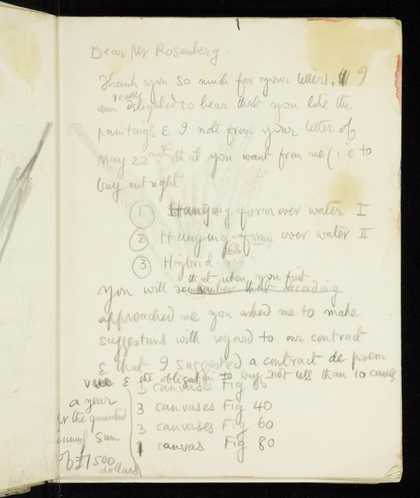 Dear Mr Rosenberg.
Thank you so much for your letters. I
am really delighted to hear that you like the
paintings & I note from your letter of
May 22nd that you want from me (i.e to
buy outright
1 Hanging form over water I
2 Hanging form over water II
3 Hybrid form
You will remember that when you first
approached me you asked me to make
suggestions with regard to our contract
& that I suggested a contract de prem
vue & the obligation to buy not less than 10 canvases
a year
for the guaranteed
annual sum
of £7500
dollars
3 canvases Fig 80
3 canvases Fig 40
3 canvases Fig 60
1 canvas Fig 80